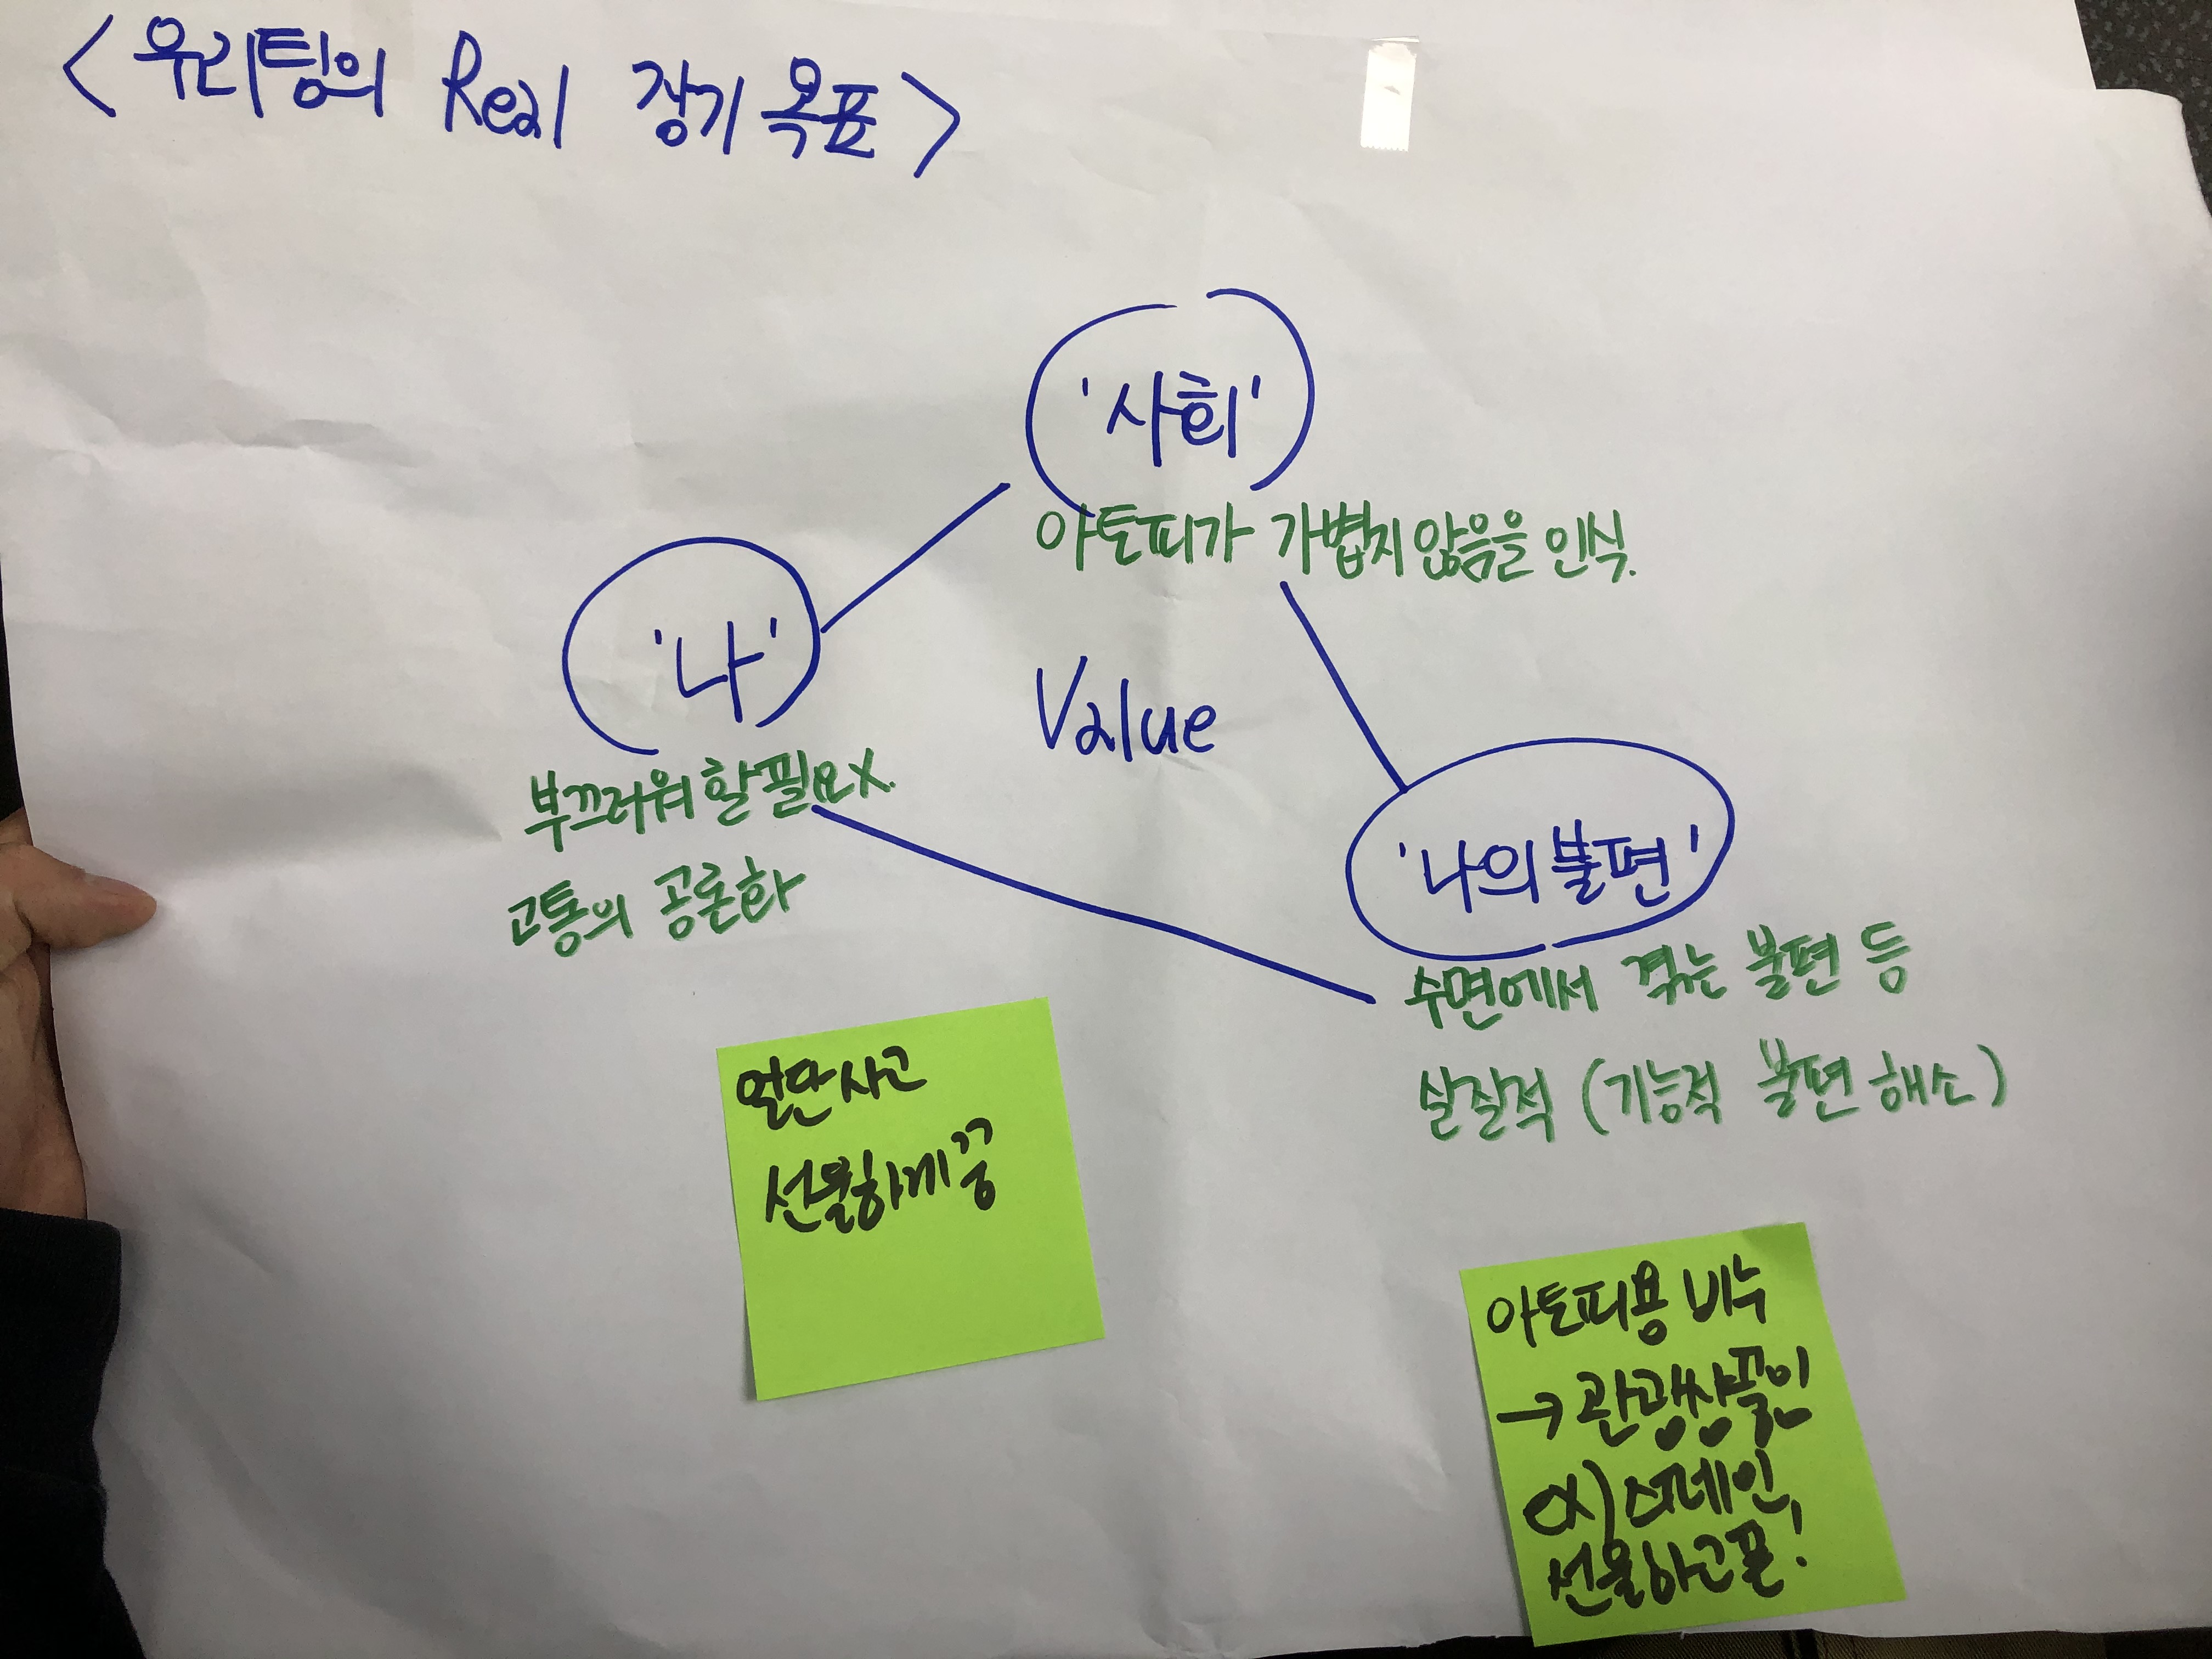 <우리팀의 Real 장기 목표>
'사회'
아토피가 가볍지 않음을 인식.
'나'
부끄러워 할 필요X.
고통의 공론화
Value
'나의 불편'
수면에서 겪는 불편 등
실질적 (기능적 불편 해소)
일단 사고
선물하게끔
아토피용 비누
→ 관광상품인
ex) 스페인
선물하고픔!